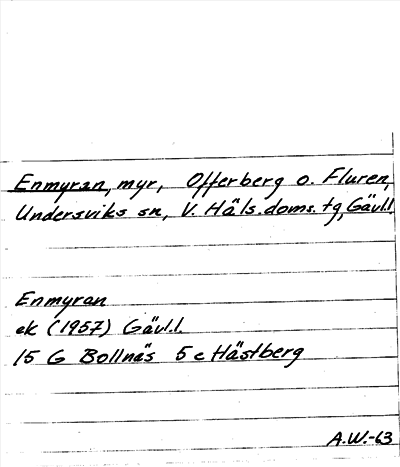 Enmyran, myr, Offerberg o. Fluren,
Undersviks sn, V. Häls. doms. tg, Gävl.l.
Enmyran
ek (1957) Gävl.l.
15 G Bollnäs 5 c Hästberg
A.W.-63